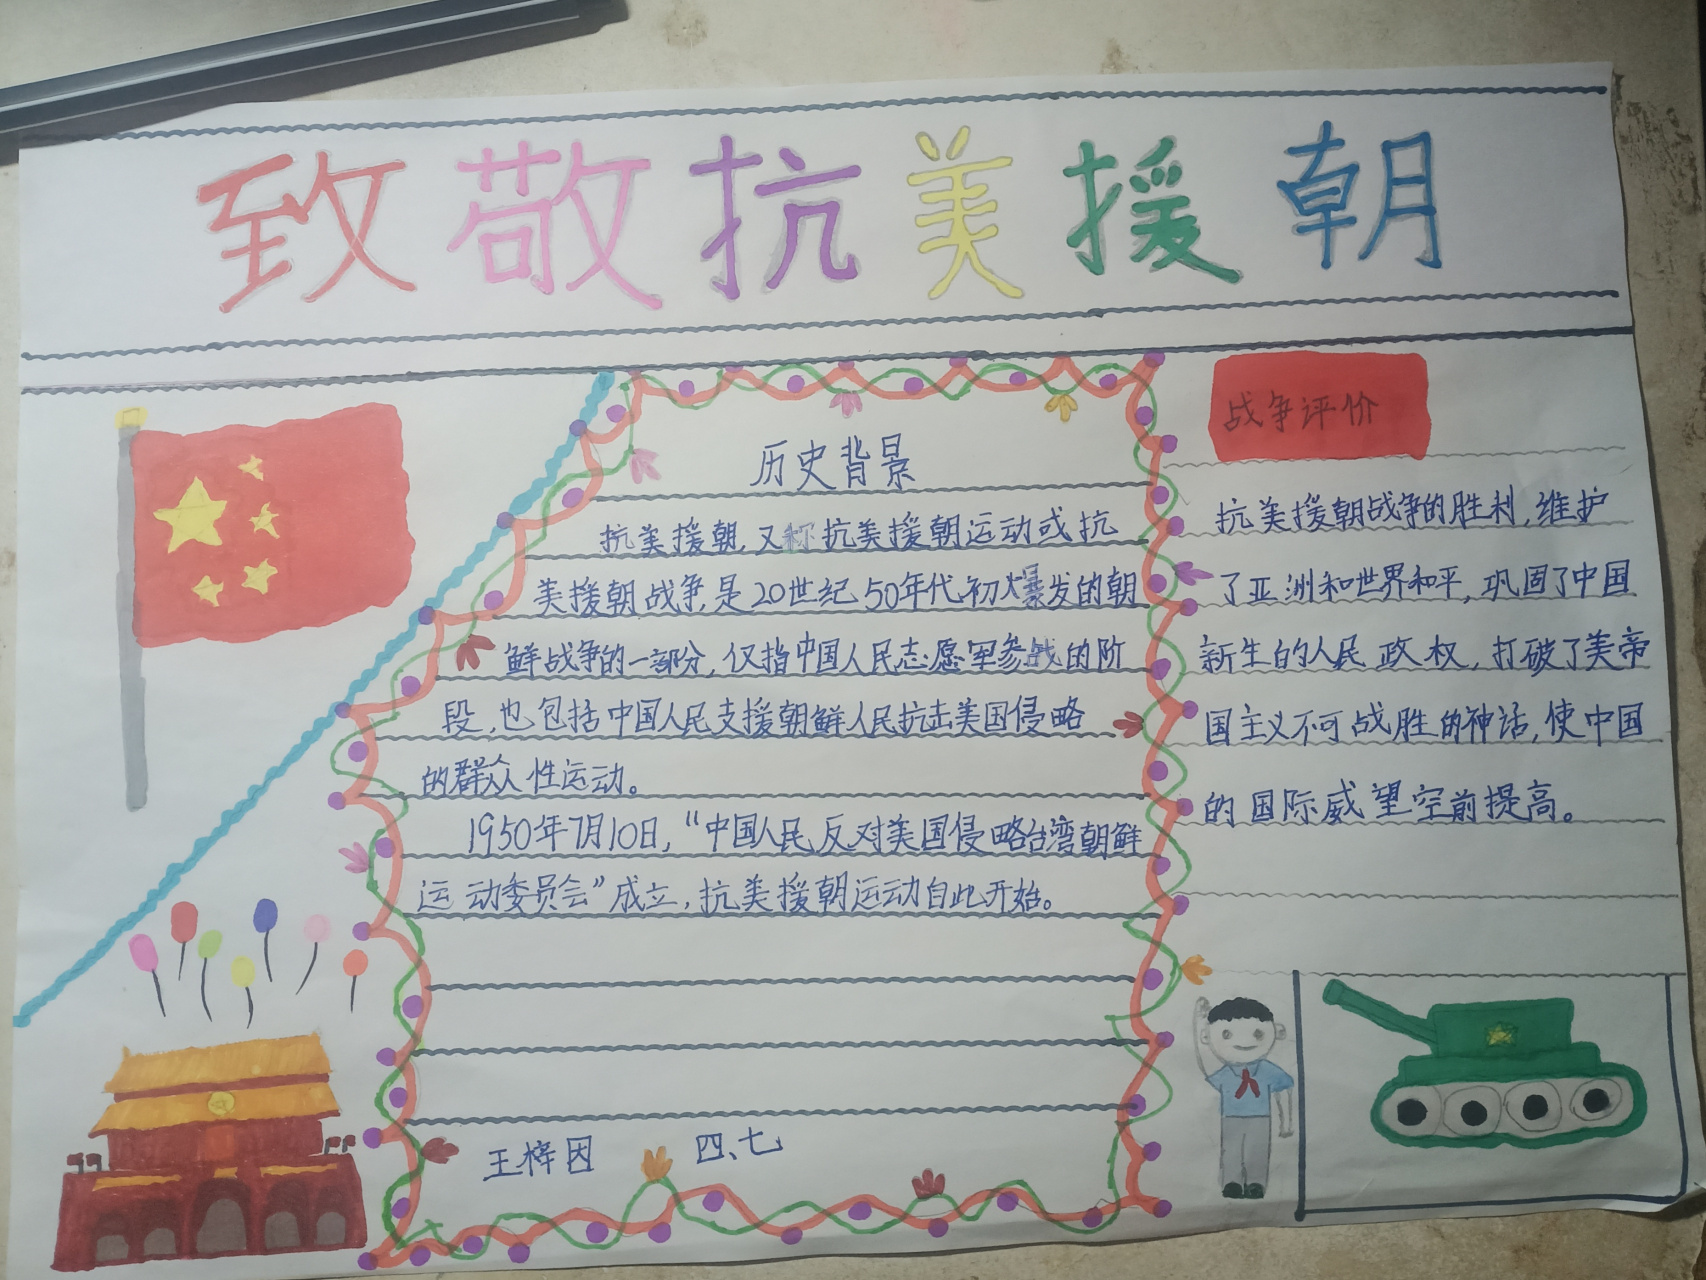 致敬抗美援朝
历史背景
抗美援朝,又称抗美援朝运动或抗
美援朝战争,是20世纪50年代初爆发的朝
鲜战争的一部分,仅指中国人民志愿军参战的阶
段,也包括中国人民支援朝鲜人民抗击美国侵略
的群众性运动。
1950年7月10日,“中国人民反对美国侵略台湾朝鲜
运动委员会”成立,抗美援朝运动自此开始。
王梓因 四、七
战争评价
抗美援朝战争的胜利,维护
了亚洲和世界和平,巩固了中国
新生的人民政权,打破了美帝
国主义不可战胜的神话,使中国
的国际威望空前提高。